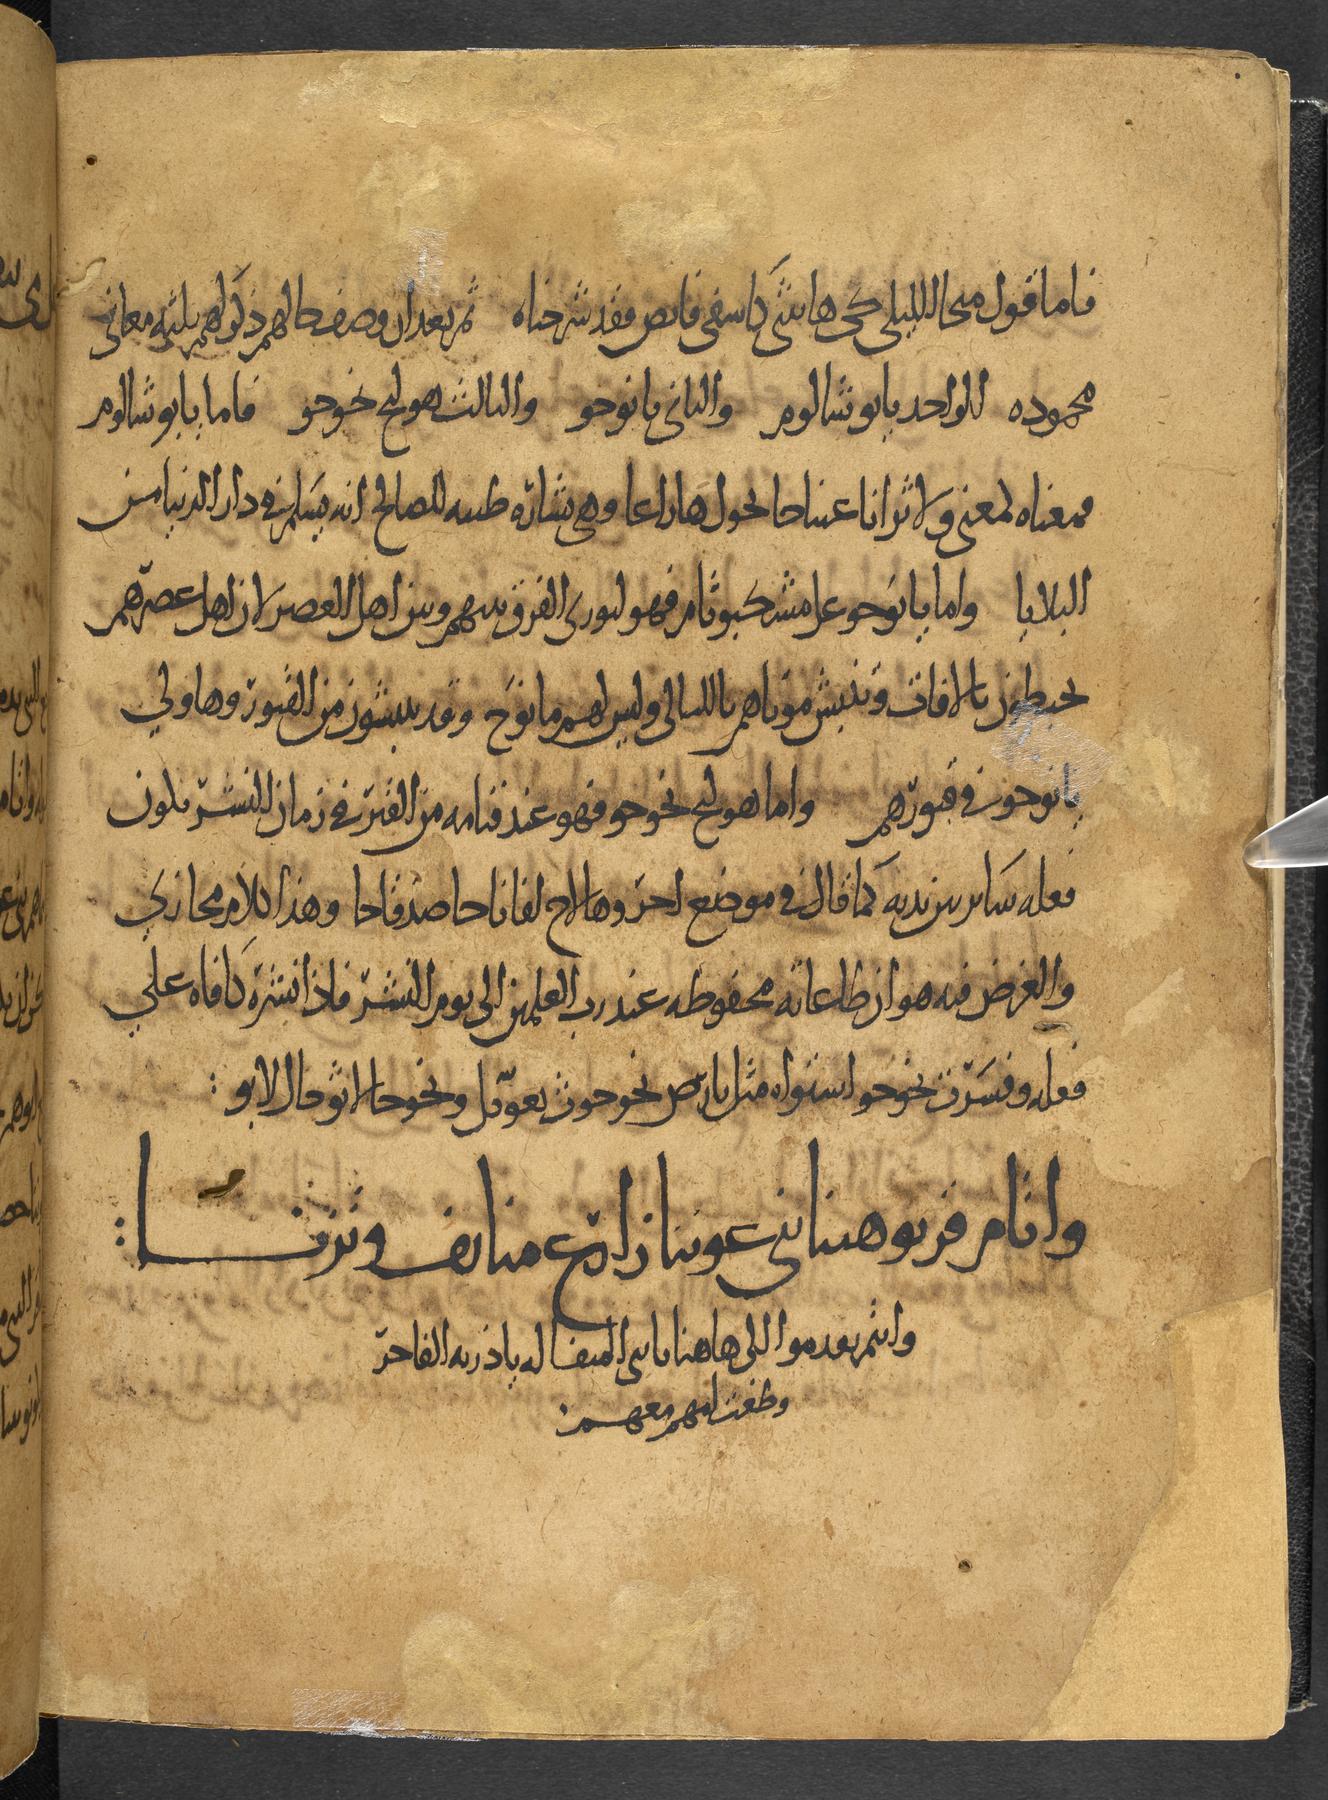 فاما قول مىحا الليلى كى هابثنى كاسفى قايص فقد شرحناه ثم بعد ان وصف حالهم ذكر لهم ثلثه معانى
محموده الواحد يابو شالوم والثانى يانوحو والثالث هوليخ نخوحو فاما يابو شالوم
فمعناه لمعنى ولا ثرانا عيناخا بخول هاراعا وهى بشارة طيبه للصالح انه يسلم فى دار الدنيا من
البلايا واما يانوحو عل مشكبوثام فهو ليورى الفرق بينهم وبين اهل العصر لان اهل عصرهم
يحيطون بالافات وتنبش موتاهم بالليالى وليس لهم مانوح وقد ينبشون من القبور وهاولى
يانوحون فى قبورهم واما هوليخ نخوحو فهو عند قيامه من القبر فى زمان النشر يكون
فعله ساير بين يديه كما قال فى موضع اخر وهالاخ لفاناخا صدقاخا وهذا الكلام مجازى
والغرض فيه هو ان طاعاته محفوظه عند رب العلمين الى يوم النشر فاذا انشره كافاه على
فعله وفسرت نخوحو استواه مثل يارص نخوحوث بعوى كل ونخوحا لا ثوخال لابو :
واثام قربو هينا بنى عونينا زارع مناىف وثزنا :
وانتم تقدموا الى هاهنا يا بنى المتفاله ياذريه الفاجر
وطغت امهم معهم